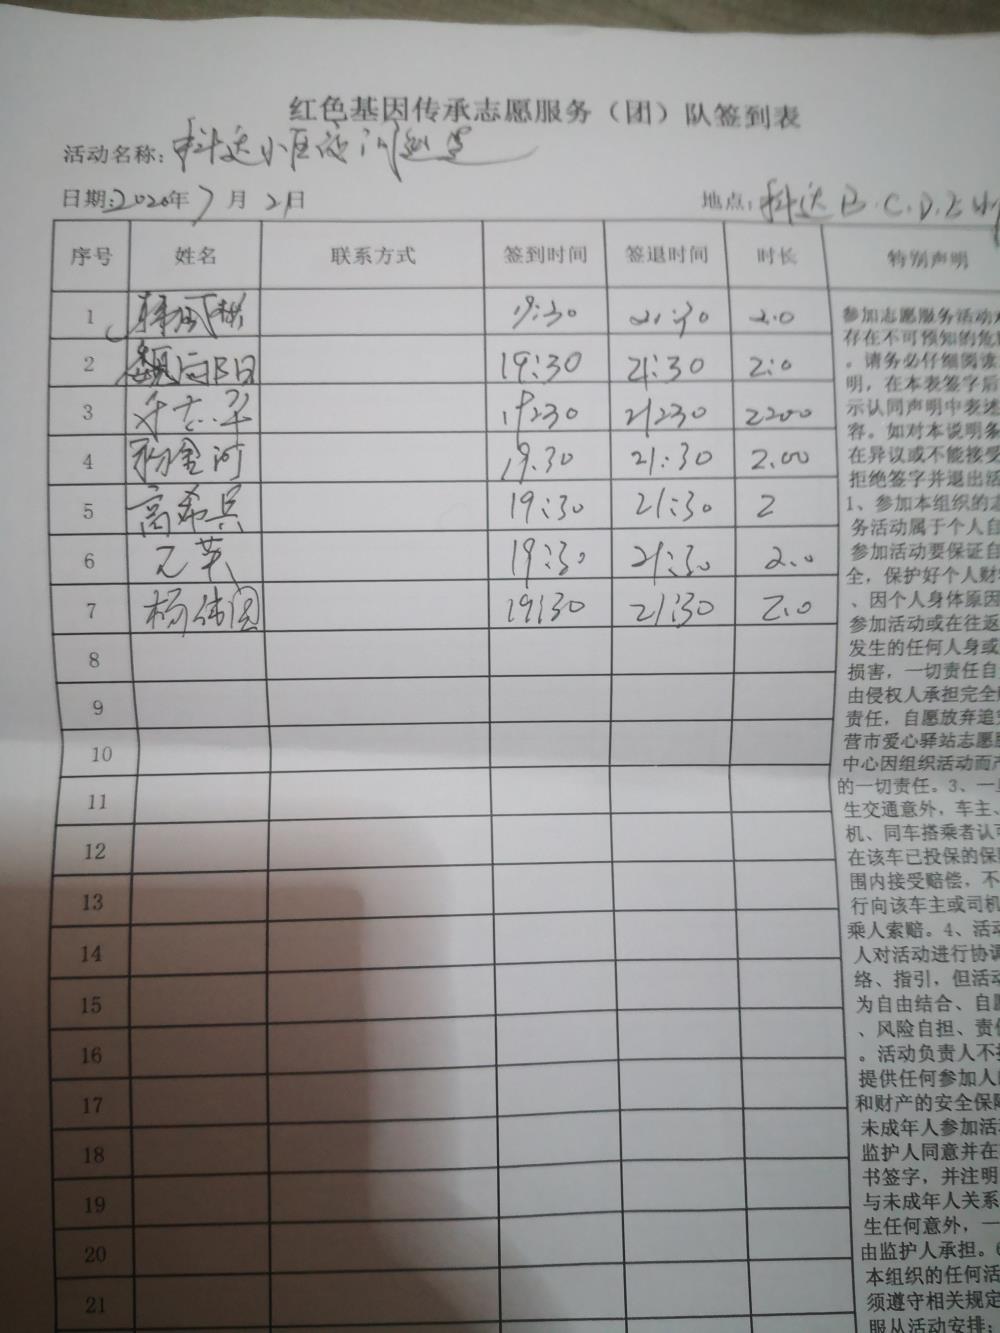 红色基因传承志愿服务（团）队签到表
活动名称：科达小区夜间巡逻
日期：2020年7月21日 地点：科达B.C.D.E
序号 姓名 联系方式 签到时间 签退时间 时长 特别声明
1 19:30 21:30 2.0
2 19:30 21:30 2:0
3 19230 21230 2200
4 19.30 21:30 2.00
5 高希兵 19:30 21:30 2
6 19:30 21:30 2.0
7 杨 19:30 21:30 2.0
8
9
10
11
12
13
14
15
16
17
18
19
20
21
参加志愿服务活动
存在不可预知的危
。请务必仔细阅读
明，在本表签字后
示认同声明中表述
容。如对本说明条
在异议或不能接受
拒绝签字并退出活
1、参加本组织的志
务活动属于个人自
参加活动要保证自
全，保护好个人财
、因个人身体原因
参加活动或在往返
发生的任何人身或
损害，一切责任自
由侵权人承担完全
责任，自愿放弃追
营市爱心驿站志愿
中心因组织活动而产
的一切责任。3、一
生交通意外，车主、
机、同车搭乘者认
在该车已投保的保
围内接受赔偿，不
行向该车主或司机
乘人索赔。4、活动
人对活动进行协调
络、指引，但活动
为自由结合、自愿
、风险自担、责
。活动负责人不
提供任何参加人
和财产的安全保障
未成年人参加活
监护人同意并在
书签字，并注明
与未成年人关系
生任何意外，一
由监护人承担。6
本组织的任何活
须遵守相关规定
服从活动安排；